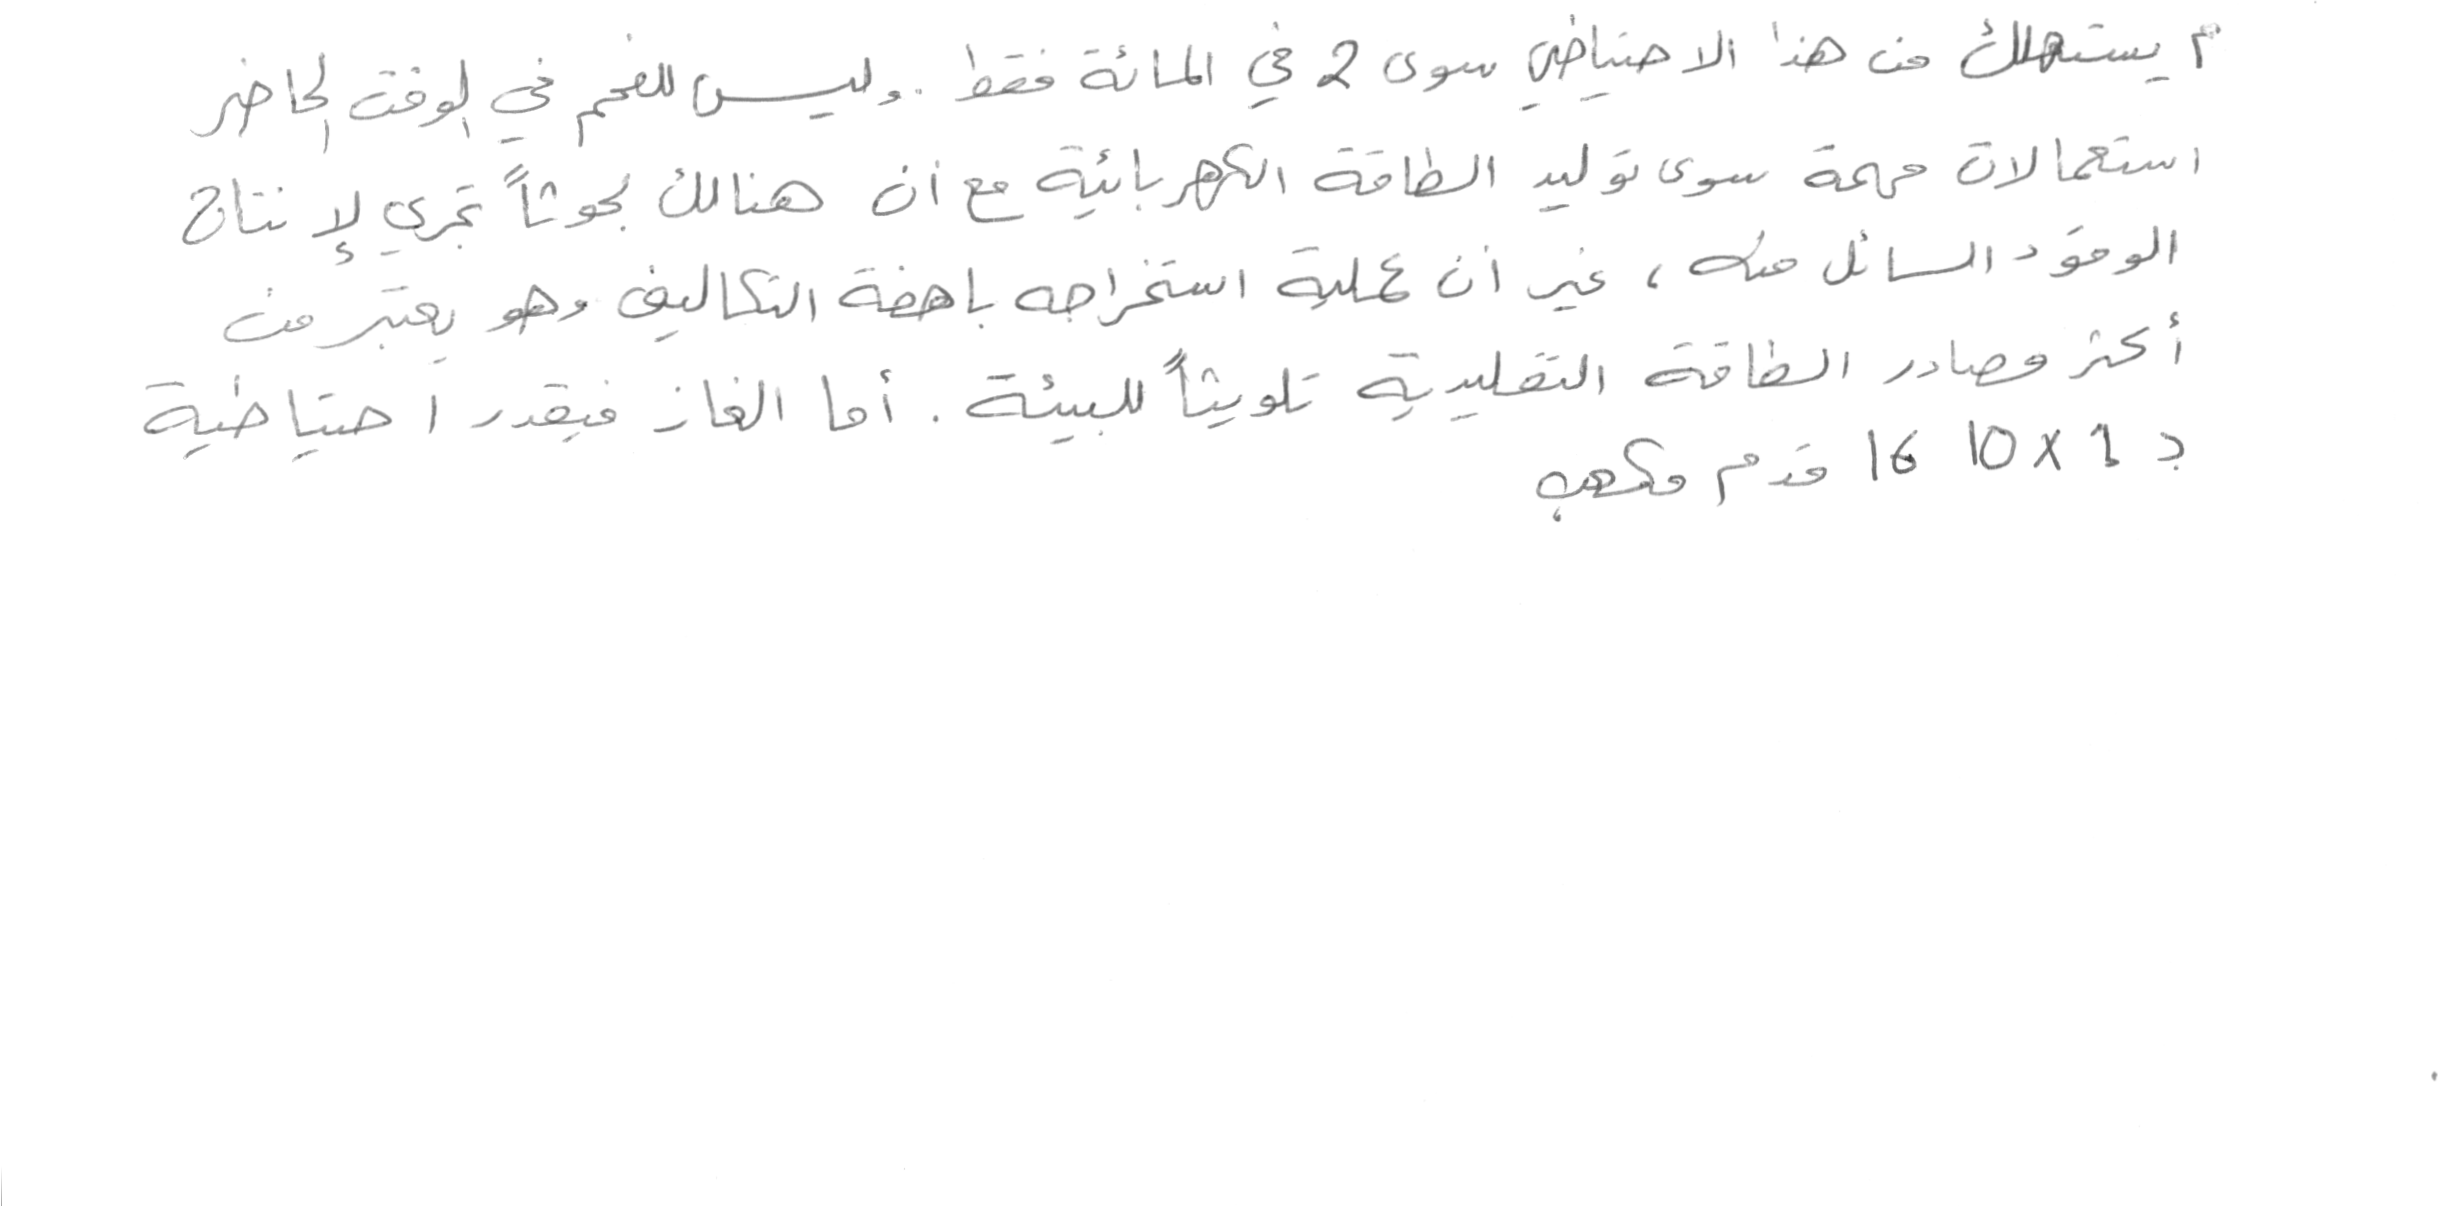 م يستهلك من هذا الاحتياطي سوى 2 في المائة فقط . وليس للفحم في الوقت الحاضر
استعمالات مهمة سوى توليد الطاقة الكهربائية مع أن هنالك بحوثاً تجري لإنتاج
الوقود السائل منه ، غير أن عملية استخراجه باهضة التكاليف وهو يعتبر من
أكثر مصادر الطاقة التقليدية تلويثاً للبيئة . أما الغاز فيقدر احتياطية
بـ 1 × 10 16 قدم مكعب